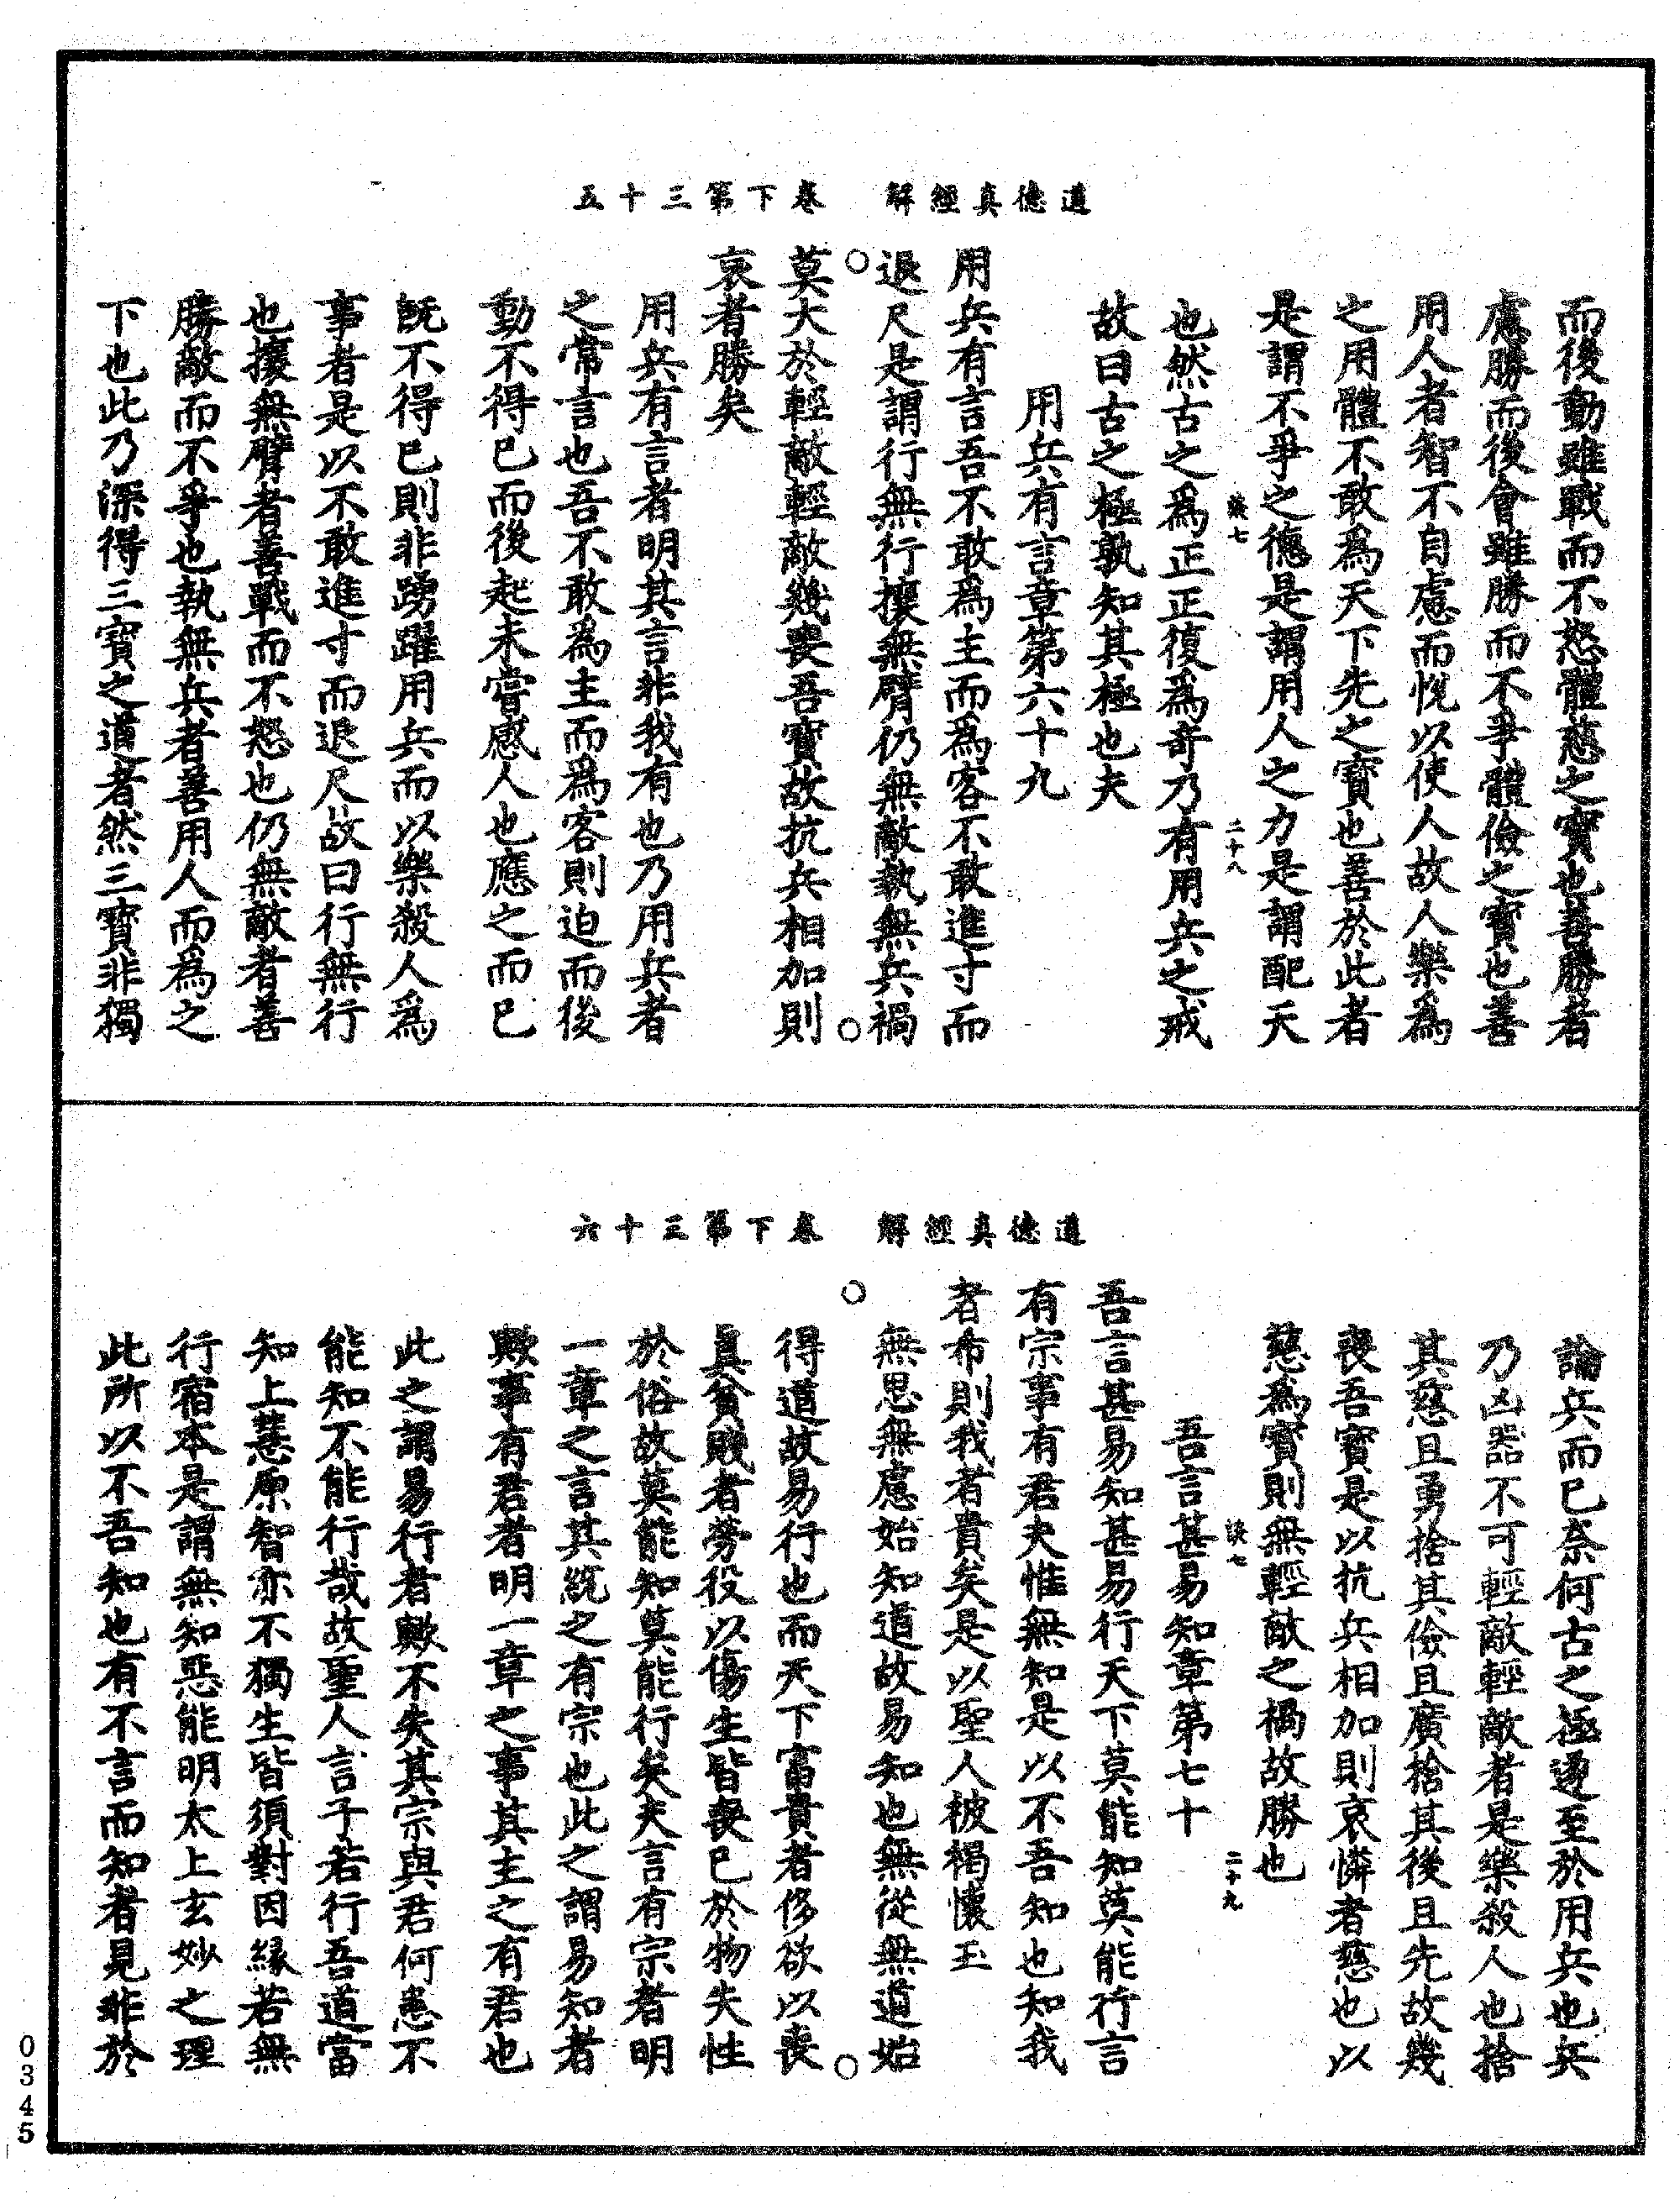 道德真經解　卷下第三十五
而後動雖戰而不怒體慈之寶也善勝者
慮勝而後會雖勝而不爭體儉之寶也善
用人者智不自慮而悅以使人故人樂為
之用體不敢為天下先之寶也善於此者
是謂不爭之德是謂用人之力是謂配天
二十八
也然古之為正正復為奇乃有用兵之戒
故曰古之極孰知其極也夫
用兵有言章第六十九
用兵有言吾不敢為主而為客不敢進寸而
退尺是謂行無行攘無臂仍無敵執無兵禍
莫大於輕敵輕敵幾喪吾寶故抗兵相加則
哀者勝矣
用兵有言者明其言非我有也乃用兵者
之常言也吾不敢為主而為客則迫而後
動不得已而後起未嘗感人也應之而已
既不得已則非踴躍用兵而以樂殺人為
事者是以不敢進寸而退尺故曰行無行
也攘無臂者善戰而不怒也仍無敵者善
勝敵而不爭也執無兵者善用人而為之
下也此乃深得三寶之道者然三寶非獨
道德真經解　卷下第三十六
論兵而已奈何古之極遂至於用兵也兵
乃凶器不可輕敵輕敵者是樂殺人也捨
其慈且勇捨其儉且廣捨其後且先故幾
喪吾寶是以抗兵相加則哀憐者慈也以
慈為寶則無輕敵之禍故勝也
二十九
吾言甚易知章第七十
吾言甚易知甚易行天下莫能知莫能行言
有宗事有君夫惟無知是以不吾知也知我
者希則我者貴矣是以聖人被褐懷玉
無思無慮始知道故易知也無從無道始
得道故易行也而天下富貴者侈欲以喪
真貧賤者勞役以傷生皆喪己於物失性
於俗故莫能知莫能行矣夫言有宗者明
一章之言其統之有宗也此之謂易知者
歟事有君者明一章之事其主之有君也
此之謂易行者歟不失其宗與君何患不
能知不能行哉故聖人言子若行吾道當
知上慧原智亦不獨生皆須對因緣若無
行宿本是謂無知惡能明太上玄妙之理
此所以不吾知也有不言而知者見非於
0345